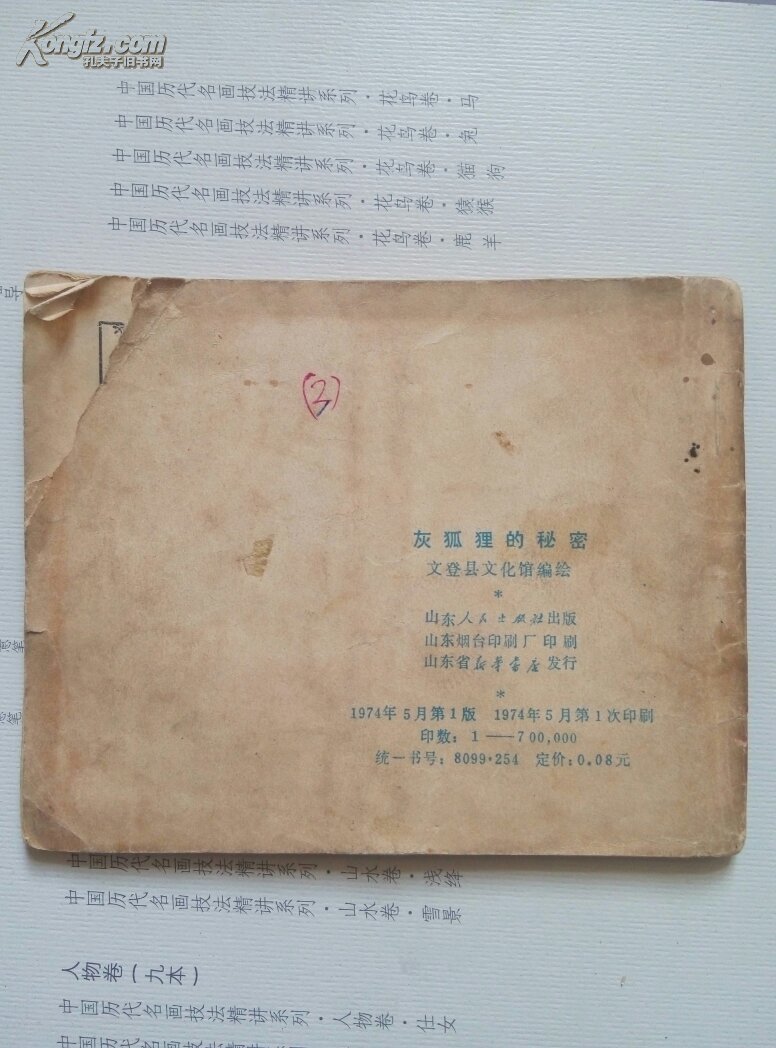 Kongfz.com
孔夫子旧书网
中国历代名画技法精讲系列·花鸟卷·马
中国历代名画技法精讲系列·花鸟卷·兔
中国历代名画技法精讲系列·花鸟卷·猫 狗
中国历代名画技法精讲系列·花鸟卷·猿猴
中国历代名画技法精讲系列·花鸟卷·鹿 羊
(3)
灰狐狸的秘密
文登县文化馆编绘
*
山东人民出版社出版
山东烟台印刷厂印刷
山东省新华书店发行
*
1974年5月第1版 1974年5月第1次印刷
印数：1——700,000
统一书号：8099·254 定价：0.08元
中国历代名画技法精讲系列·山水卷·浅绛
中国历代名画技法精讲系列·山水卷·雪景
人物卷(九本)
中国历代名画技法精讲系列·人物卷·仕女